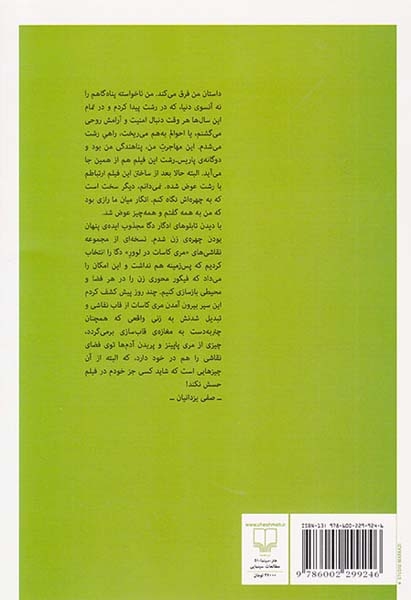 داستان من فرق می‌کند. من ناخواسته پناه‌گاهم را
نه آنسوی دنیا، که در رشت پیدا کردم و در تمام
این سال‌ها هر وقت دنبال امنیت و آرامش روحی
می‌گشتم، یا احوالم به‌هم می‌ریخت، راهیِ رشت
می‌شدم. این مهاجرتِ من، پناهندگی من بود و
دوگانه‌ی پاریس-رشت این فیلم هم از همین جا
می‌آید. البته حالا بعد از ساختن این فیلم ارتباطم
با رشت عوض شده. نمی‌دانم، دیگر سخت است
به چهره‌اش نگاه کنم. انگار میان ما رازی بود
که من به همه گفتم و همه‌چیز عوض شد.
با دیدن تابلوهای ادگار دگا مجذوب ایده‌ی پنهان
بودن چهره‌ی زن شدم. نسخه‌ای از مجموعه
نقاشی‌های «مری کاسات در لوور» دگا را انتخاب
کردیم که پس‌زمینه هم نداشت و این امکان را
می‌داد که فیگور محوری زن را در هر فضا و
محیطی بازسازی کنیم. چند روز پیش کشف کردم
این سیر بیرون آمدن مری کاسات از قاب نقاشی و
تبدیل شدنش به زنی واقعی که همچنان
چتربه‌دست به مغازه‌ی قاب‌سازی برمی‌گردد،
چیزی از مری پاپینز و پریدن آدم‌ها توی فضای
نقاشی را هم در خود دارد، که البته از آن
چیزهایی است که شاید کسی جز خودم در فیلم
حسش نکند!
ــ صفی یزدانیان ــ
www.cheshmeh.ir
هنر، سینما-۵۱
مطالعات سینمایی
تومان
ISBN-13: 978-600-229-924-6
9 786002 299246
STUDIO MARKAZI